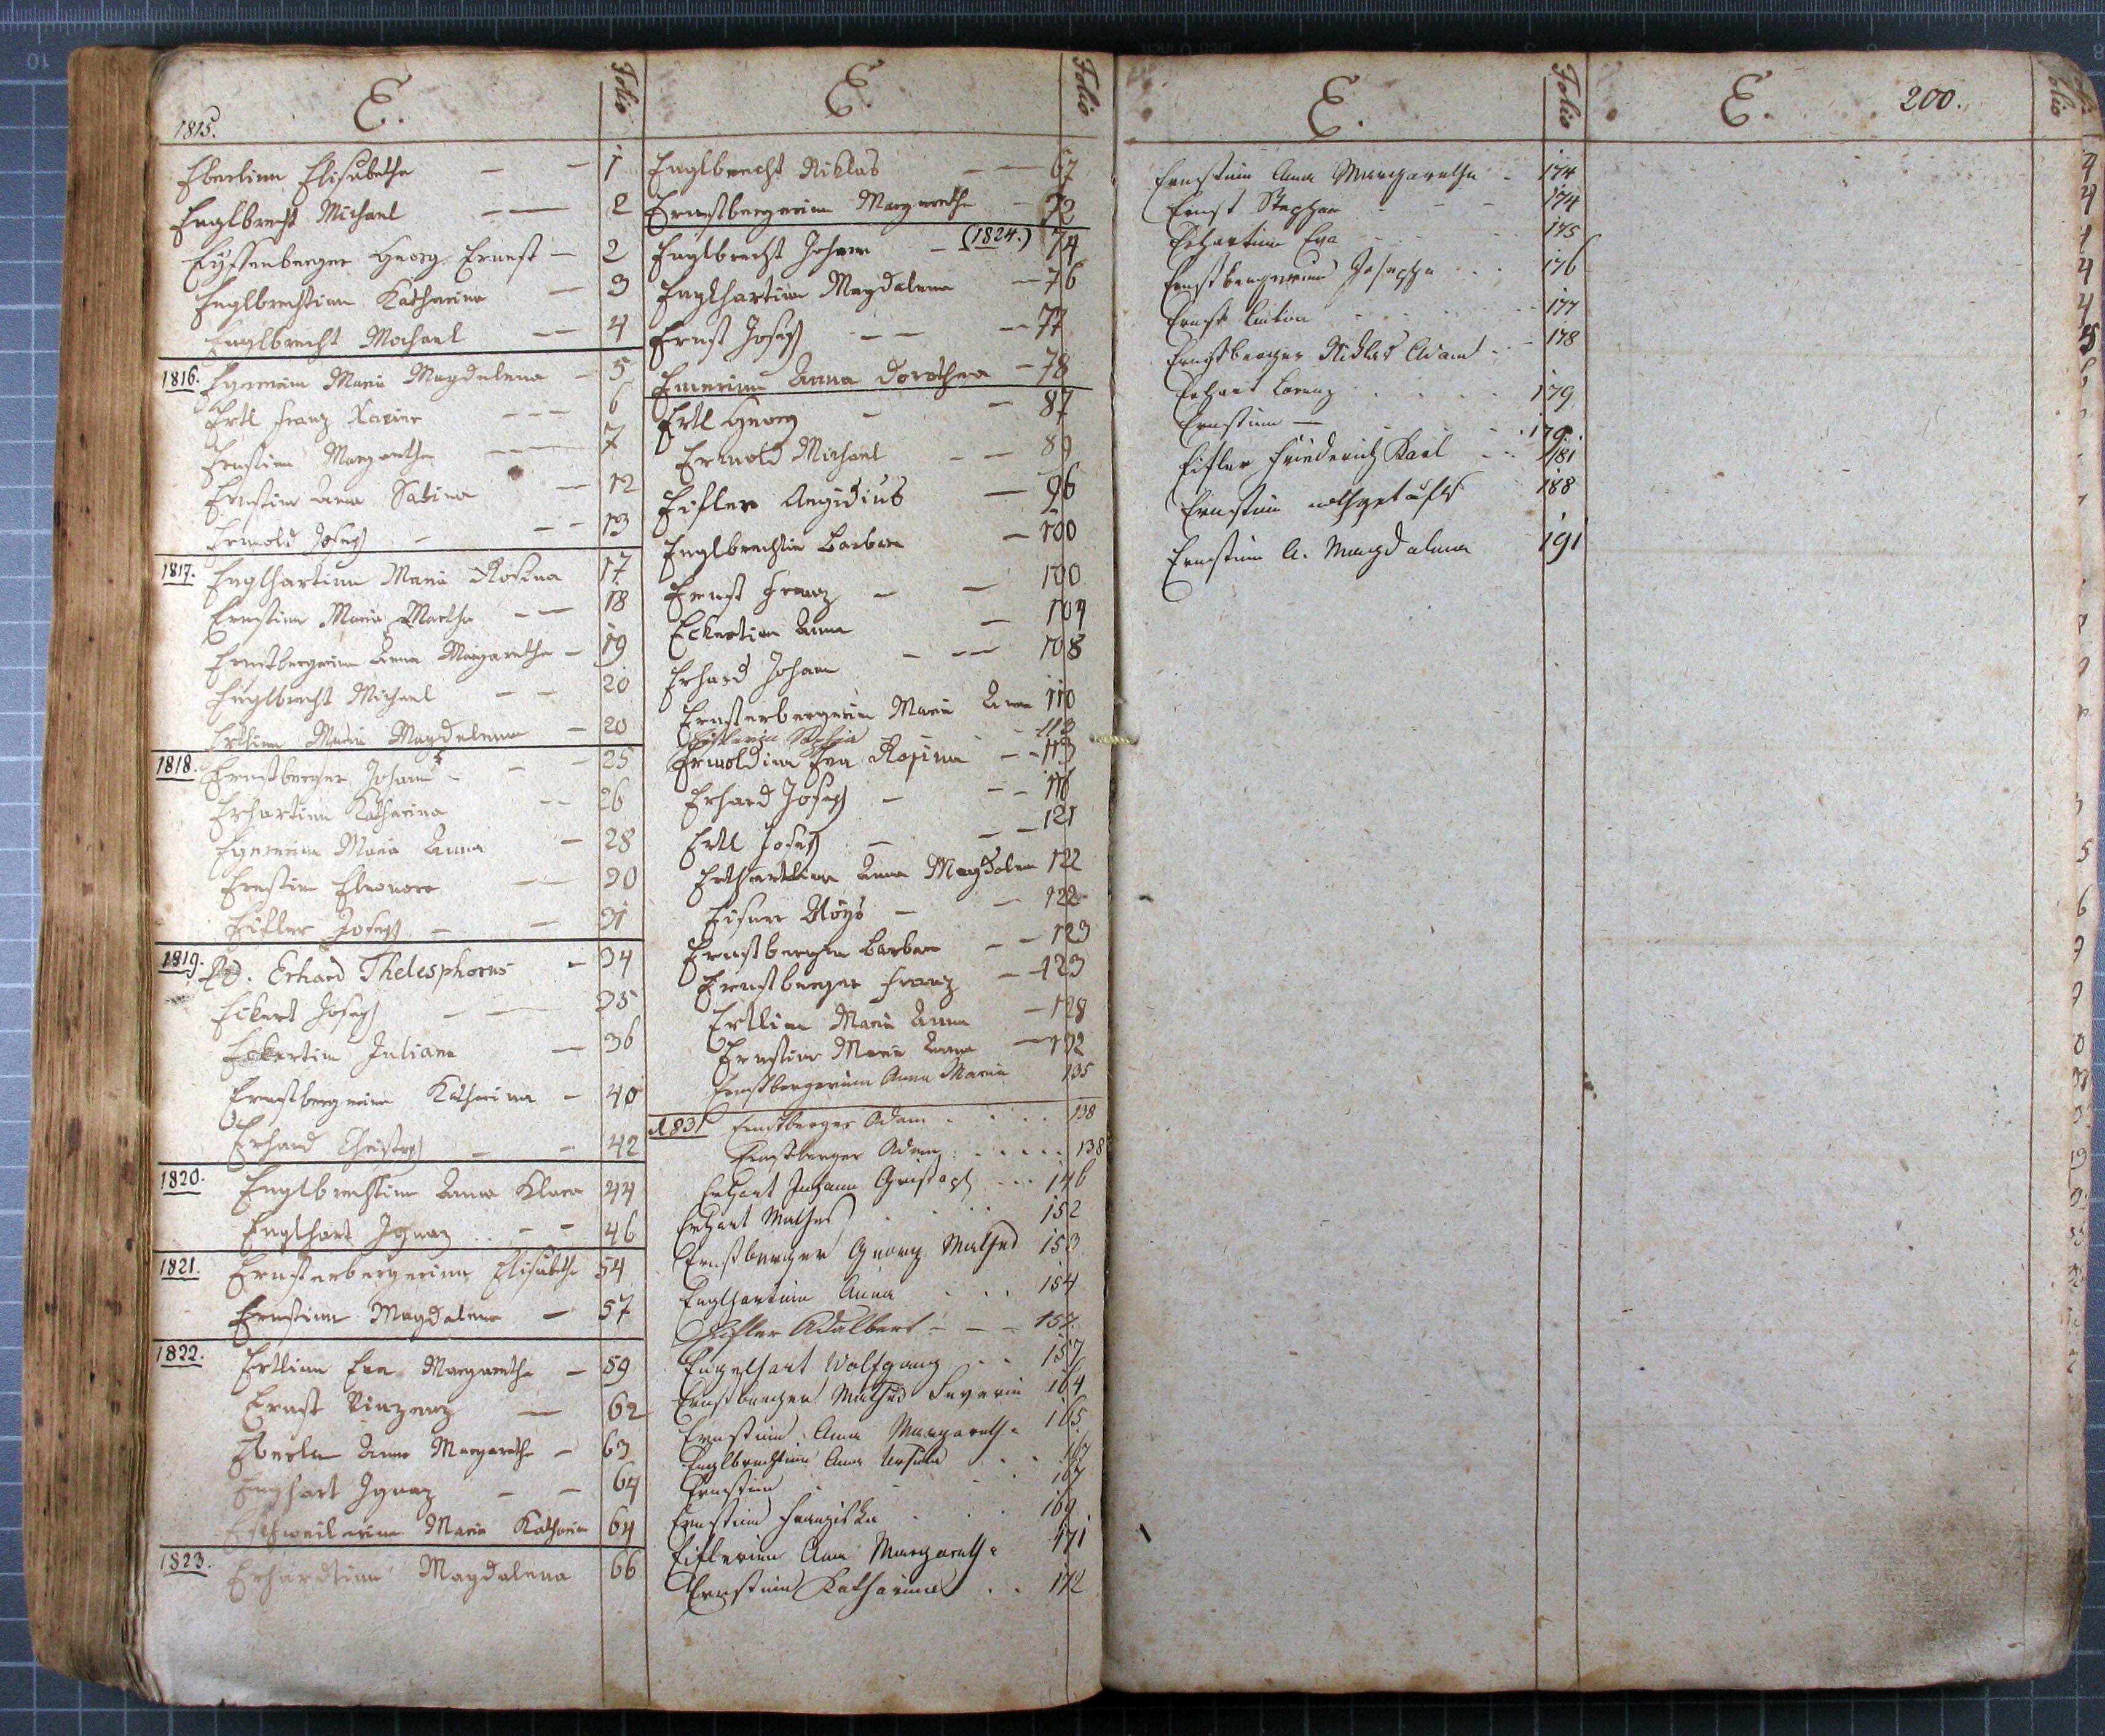 E.
Folio
1815.
Eberlinn Elisabetha — — 1
Englbrecht Michael — — 2
Eyssenberger Georg Ernest — 2
Englbrechtinn Katharina — 3
Englbrecht Michael — — 4
1816. Magdalena — 5
Ertl Franz Xavier — — — 6
Ernstinn Margaretha — — 7
Ernstinn Anna Sabina — 12
Ermold Joseph — — — 13
1817. Englhartinn Maria Rosina 17
Ernstinn Maria Martha — — 18
Ernstbergerinn Anna Margaretha — 19
Englbrecht Michael — — 20
Maria Magdalena — 20
1818. Ernstberger Johann — — — 25
Erhartinn Katharina — — 26
Maria Anna — 28
Ernstinn Eleonora — — 30
Eisler Joseph — — 31
1819. Erhard Thelesphorus — 34
Eckert Joseph — — 35
Eckertin Juliana — 36
Ernstbergerinn Katharina — 40
Erhard Christoph — — 42
1820. Englbrechtinn Anna Klara 44
Englhart Ignaz — — 46
1821. Ernsterbergerinn Elisabetha 54
Ernstinn Magdalena — 57
1822. Ertlinn Eva Margaretha — 59
Ernst Vinzenz — 62
Eberla Anna Margaretha — 63
Englhart Ignaz — — 64
Eschweilerinn Maria Katharina 64
1823. Erhardtinn Magdalena 66
E.
Folio
Englbrecht Niklas — — 67
Ernstbergerinn Margaretha — 72
Englbrecht Johann — (1824.) 74
Englhartinn Magdalena — 76
Ernst Joseph — — — 77
Anna Dorothea — 78
Ertl Georg — — 87
Ermold Michael — — 89
Eisler Aegidius — 96
Englbrechtin Barbara — 100
Ernst Franz — — 100
Eckertinn Anna — 104
Erhard Johann — — — 108
Ernsterbergerinn Maria Anna 110
Eislerin Sophia 113
Ermoldinn Eva Rosina — — 113
Erhard Joseph — — — 116
Ertl Joseph — — — 121
Anna Magdalena 122
Aloys — — 122
Ernstbergerin Barbara — — 123
Ernstberger Franz — — 123
Ertlinn Maria Anna — 128
Ernstinn Maria Anna — 132
Ernstbergerinn Anna Maria 135
1831 Ernstberger Adam . . . . 138
Ernstberger Adam . . . . . 138
Erhart Johann Christoph . . . 146
Erhart Mathes . . . . 152
Ernstberger Georg Mathes 153
Englhartinn Anna . . . 154
Eisler Adalbert — — — 157
Engelhart Wolfgang . . 157
Ernstberger Mathes Severin 164
Ernstinn Anna Margareth. 165
Englbrechtinn Anna Ursula . . . 167
Ernstinn . . . . 167
Ernstinn Franziska . . . 169
Eislerinn Anna Margareth. 171
Ernstinn Katharina . . 172
E.
Folio
Ernstinn Anna Margaretha . 174
Ernst Stephan — — — 174
Erhartinn Eva — — — 175
Ernstbergerinn Josepha . . . 176
Ernst Anton . . . . . 177
Ernstberger Niklas Adam . — 178
Erhart Lorenz . . . . 179
Ernstinn — . . . 179
Eisler Friederich Karl . . . 181
Ernstinn nothgetauft 188
Ernstinn A. Magdalena 191
E.
200.
Folio